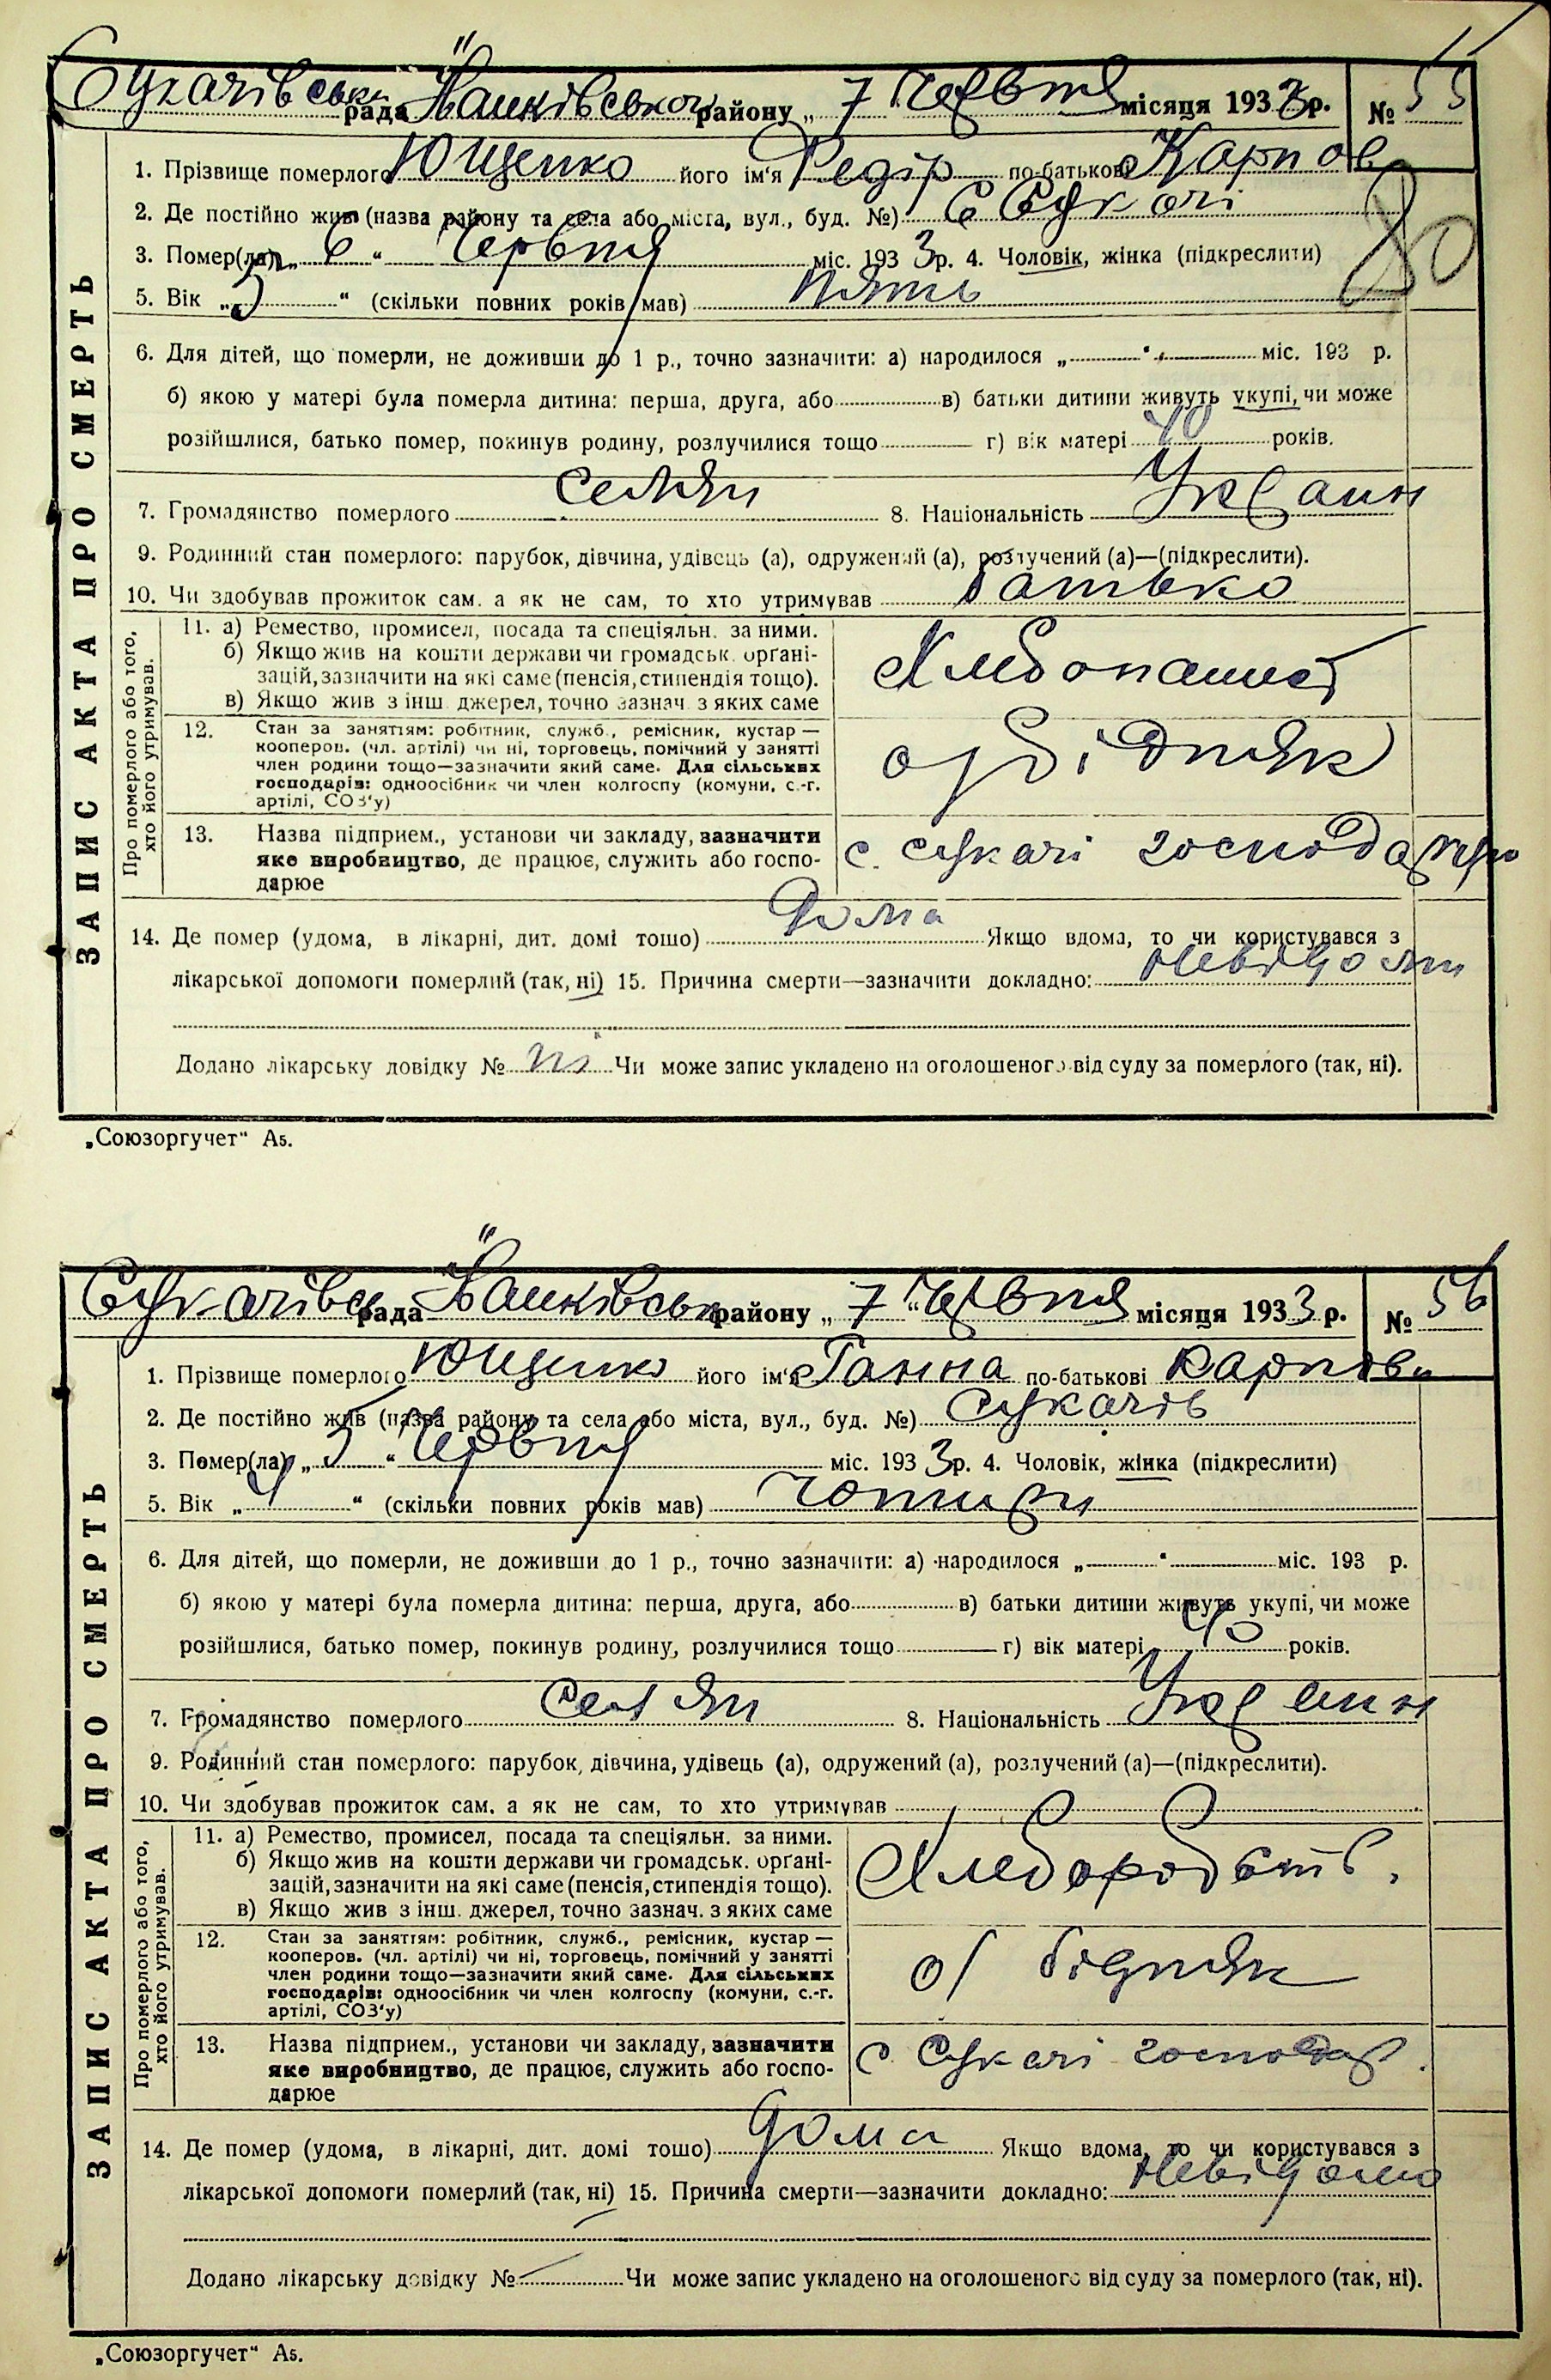 Сукачівськ рада Іванківського району „ 7 " Червня місяця 1933 р. № 55
1. Прізвище померлого Ющенко його ім'я Федір по-батькові Карпов
2. Де постійно жив (назва району та села або міста, вул., буд. №) С Сукачі
80
3. Помер(ла) „ 6 " Червня міс. 193 3 р. 4. Чоловік, жінка (підкреслити)
5. Вік „ 5 " (скільки повних років мав) пять
6. Для дітей, що померли, не доживши до 1 р., точно зазначити: а) народилося „ " міс. 193 р.
б) якою у матері була померла дитина: перша, друга, або в) батьки дитини живуть укупі, чи може
розійшлися, батько помер, покинув родину, розлучилися тощо г) вік матері 40 років.
7. Громадянство померлого селян 8. Національність Україн
9. Родинний стан померлого: парубок, дівчина, удівець (а), одружений (а), розлучений (а)—(підкреслити).
10. Чи здобував прожиток сам. а як не сам, то хто утримував батько
ЗАПИС АКТА ПРО СМЕРТЬ
Про померлого або того, хто його утримував.
11. а) Ремество, промисел, посада та спеціяльн. за ними.
б) Якщо жив на кошти держави чи громадськ. орґані-
зацій, зазначити на які саме (пенсія, стипендія тощо).
в) Якщо жив з інш. джерел, точно зазнач. з яких саме
12. Стан за заняттям: робітник, служб., ремісник, кустар —
кооперов. (чл. артілі) чи ні, торговець, помічний у занятті
член родини тощо—зазначити який саме. Для сільських
господарів: одноосібник чи член колгоспу (комуни, с.-г.
артілі, СОЗ'у)
о/бідняк
13. Назва підприєм., установи чи закладу, зазначити
яке виробництво, де працює, служить або госпо-
дарюе
с. сукачі господарую
14. Де помер (удома, в лікарні, дит. домі тошо) Дома Якщо вдома, то чи користувався з
лікарської допомоги померлий (так, ні) 15. Причина смерти—зазначити докладно: невідоми
Додано лікарську довідку № ні Чи може запис укладено на оголошеного від суду за померлого (так, ні).
„Союзоргучет" А5.
Сукачівсь рада Іванківськ району „ 7 " Червня місяця 1933 р. № 56
1. Прізвище померлого Ющенко його ім'я Ганна по-батькові Карпівн
2. Де постійно жив (назва району та села або міста, вул., буд. №) Сукачів
3. Помер(ла) „ 5 " Червня міс. 193 3 р. 4. Чоловік, жінка (підкреслити)
5. Вік „ 4 " (скільки повних років мав) чотири
6. Для дітей, що померли, не доживши до 1 р., точно зазначити: а) народилося „ " міс. 193 р.
б) якою у матері була померла дитина: перша, друга, або в) батьки дитини живуть укупі, чи може
розійшлися, батько помер, покинув родину, розлучилися тощо г) вік матері 40 років.
7. Громадянство померлого селян 8. Національність Україн
9. Родинний стан померлого: парубок, дівчина, удівець (а), одружений (а), розлучений (а)—(підкреслити).
10. Чи здобував прожиток сам. а як не сам, то хто утримував
ЗАПИС АКТА ПРО СМЕРТЬ
Про померлого або того, хто його утримував.
11. а) Ремество, промисел, посада та спеціяльн. за ними.
б) Якщо жив на кошти держави чи громадськ. орґані-
зацій, зазначити на які саме (пенсія, стипендія тощо).
в) Якщо жив з інш. джерел, точно зазнач. з яких саме
12. Стан за заняттям: робітник, служб., ремісник, кустар —
кооперов. (чл. артілі) чи ні, торговець, помічний у занятті
член родини тощо—зазначити який саме. Для сільських
господарів: одноосібник чи член колгоспу (комуни, с.-г.
артілі, СОЗ'у)
о/ бідняк
13. Назва підприєм., установи чи закладу, зазначити
яке виробництво, де працює, служить або госпо-
дарюе
с Сукачі господар.
14. Де помер (удома, в лікарні, дит. домі тошо) дома Якщо вдома, то чи користувався з
лікарської допомоги померлий (так, ні) 15. Причина смерти—зазначити докладно: невідомо
Додано лікарську довідку № Чи може запис укладено на оголошеного від суду за померлого (так, ні).
„Союзоргучет" А5.